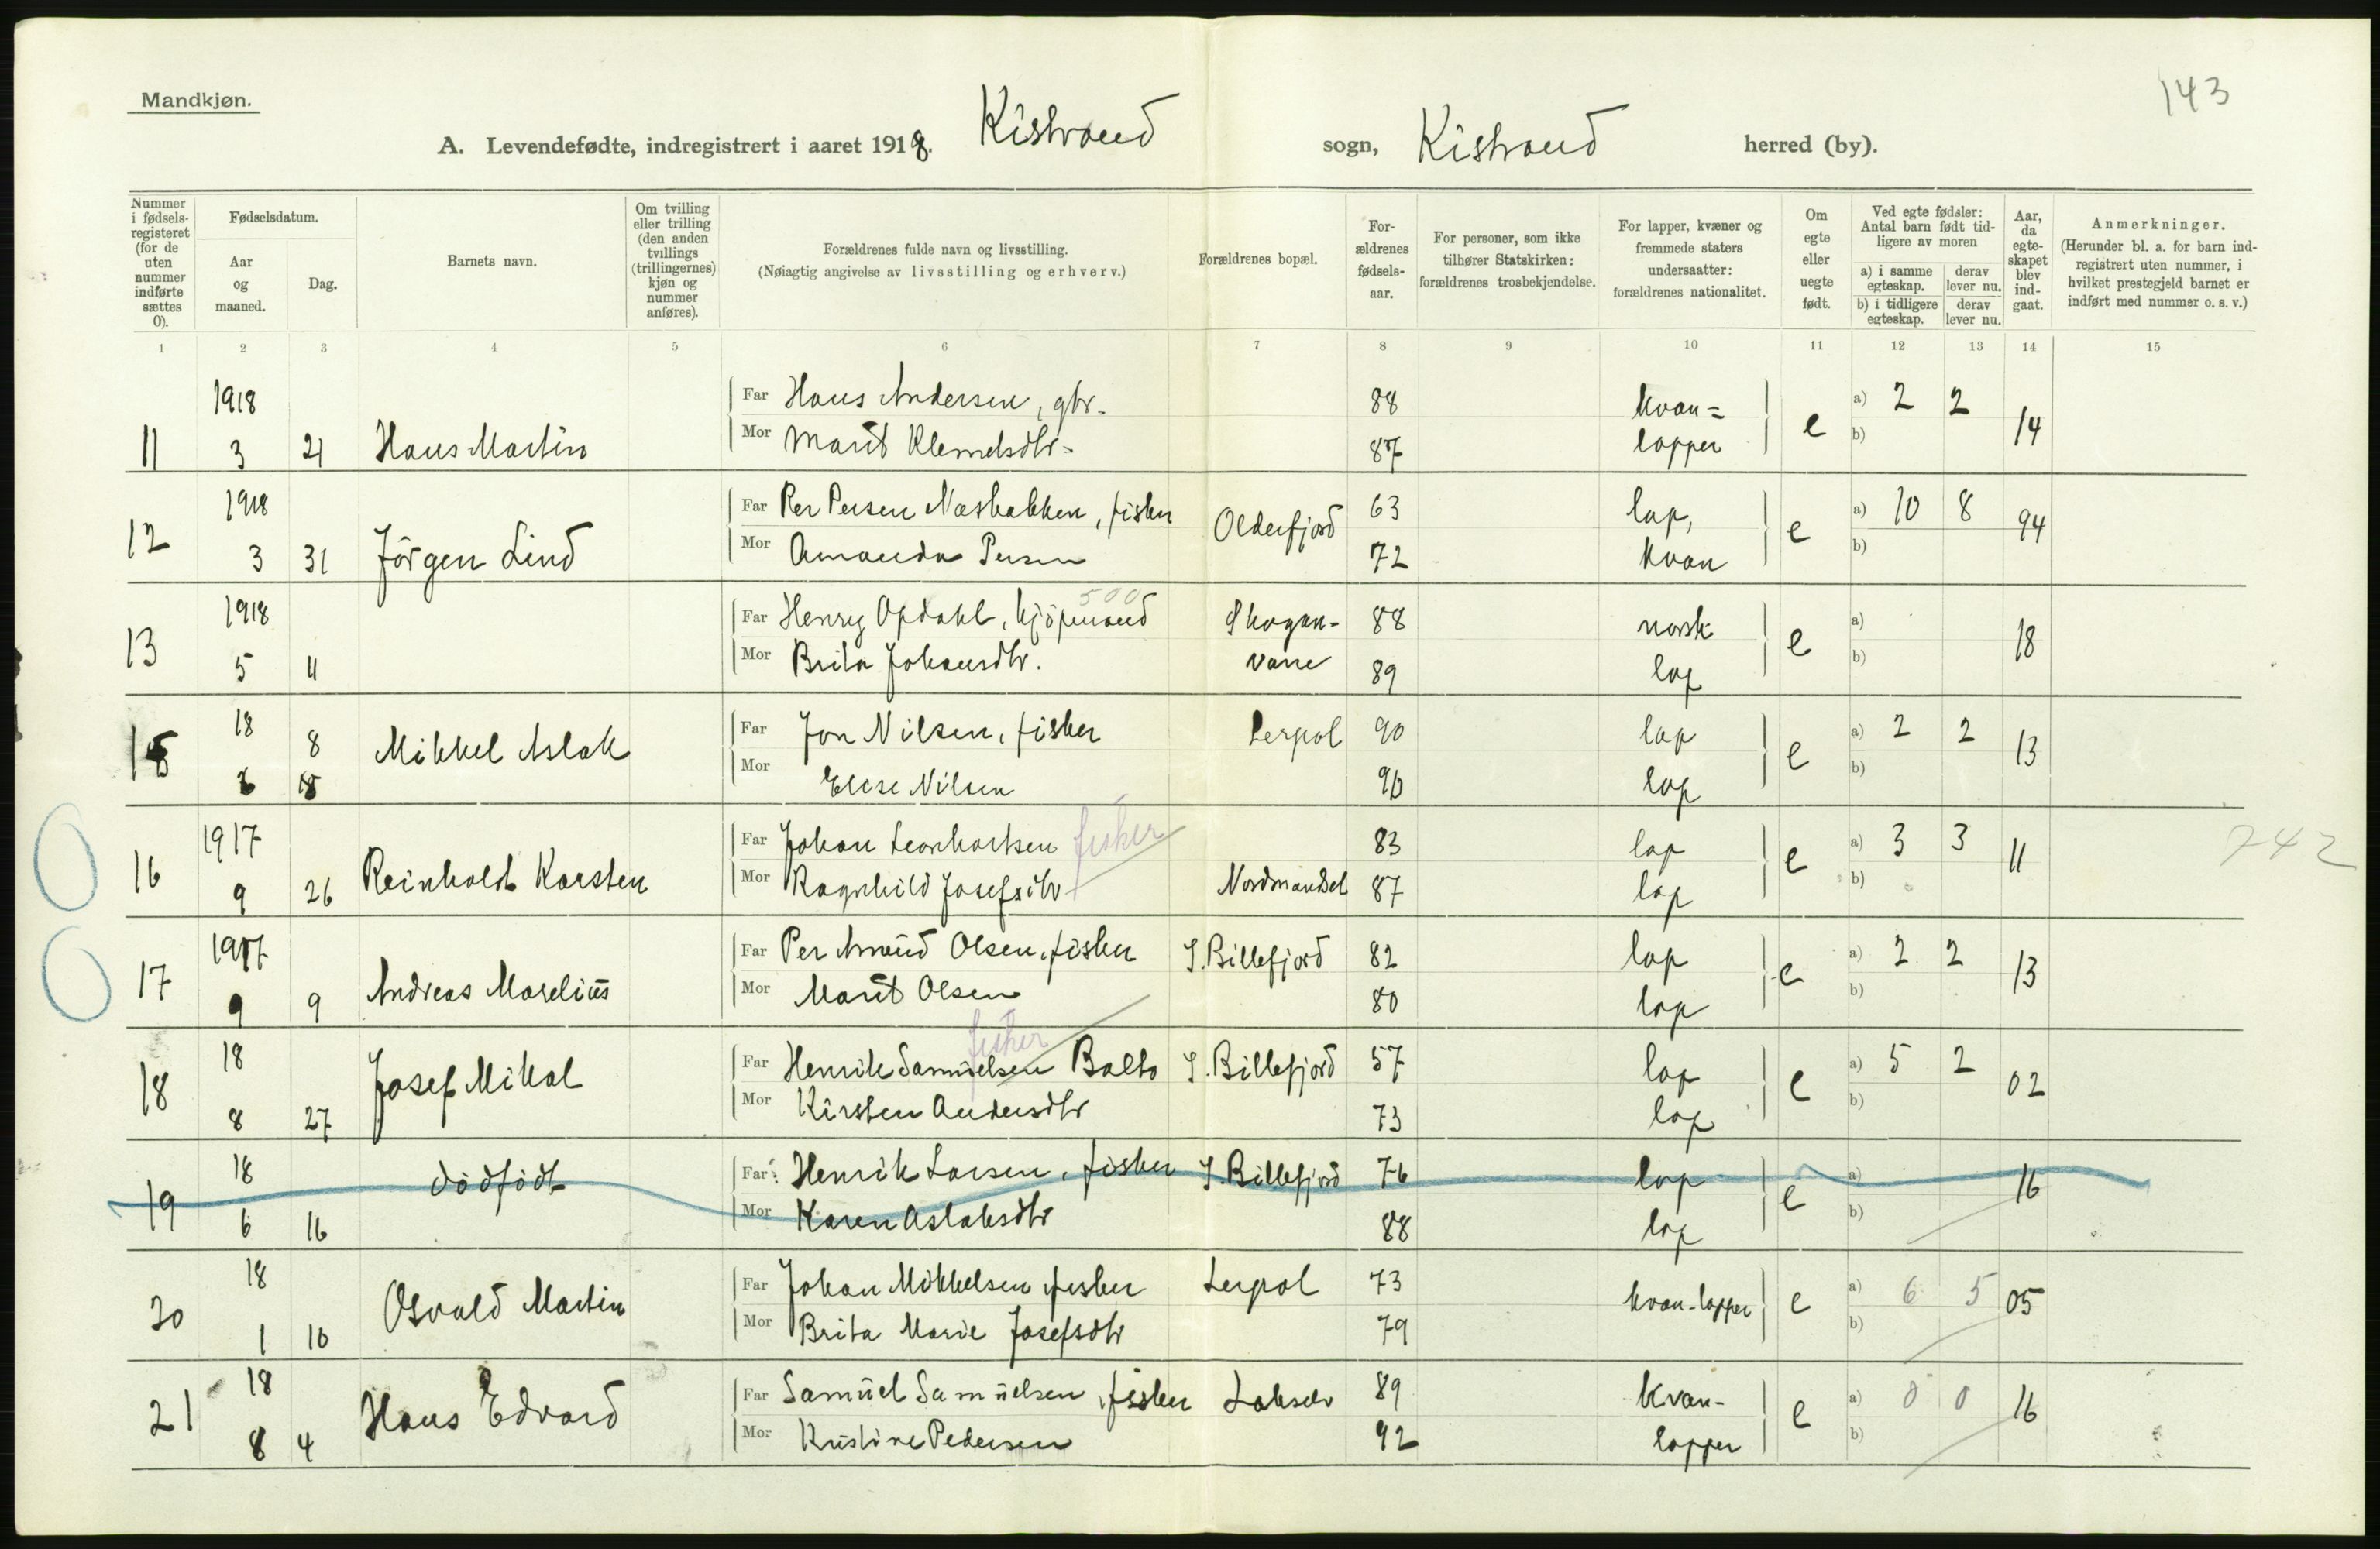 143
Mandkjøn.
A. Levendefødte, indregistrert i aaret 1918. Kistrand sogn, Kistrand herred (by).
Nummer i fødsels-registeret (for de uten nummer indførte sættes 0).
Fødselsdatum.
Aar og maaned.
Dag.
Barnets navn.
Om tvilling eller trilling (den anden tvillings (trillingernes) kjøn og nummer anføres).
Forældrenes fulde navn og livsstilling.
(Nøiagtig angivelse av livsstilling og erhverv.)
Forældrenes bopæl.
For-ældrenes fødsels-aar.
For personer, som ikke tilhører Statskirken: forældrenes trosbekjendelse.
For lapper, kvæner og fremmede staters undersaatter: forældrenes nationalitet.
Om egte eller uegte født.
Ved egte fødsler: Antal barn født tid-ligere av moren
a) i samme egteskap. derav lever nu.
b) i tidligere egteskap. derav lever nu.
Aar, da egte-skapet blev ind-gaat.
Anmerkninger.
(Herunder bl. a. for barn ind-registrert uten nummer, i hvilket prestegjeld barnet er indført med nummer o. s. v.)
1 2 3 4 5 6 7 8 9 10 11 12 13 14 15
1918 Far Hans Andersen, gbr. 88 kvæn= a) 2 2
11 3 21 Hans Martin Mor Marit Klemetsdtr. 87 lapper e b) 14
1918 Far Per Persen Næsbakken, fisker Olderfjord 63 lap, a) 10 8
12 3 31 Jörgen Lind Mor Amanda Persen 72 kvæn e b) 94
500
1918 Far Henry Opdahl, kjöpmand Skogan- 88 norsk a)
13 5 11 Mor Brita Johansdtr. varre 89 lap e b) 18
18 8 Far Jon Nilsen, fisker Lerpol 90 lap a) 2 2
15 6 18 Mikkel Aslak Mor Elese Nilsen 90 lap e b) 13
1917 Far Johan Leonhartsen fisker 83 lap a) 3 3 742
16 9 26 Reinholdt Karsten Mor Ragnhild Josefsdtr Nordmandset 87 lap e b) 11
1917 Far Per Amund Olsen, fisker S. Billefjord 82 lap a) 2 2
17 9 9 Andreas Marelius Mor Marit Olsen 80 lap e b) 13
fisker
18 Far Henrik Samuelsen Balto S. Billefjord 57 lap a) 5 2
18 8 27 Josef Mikal Mor Kirsten Andersdtr 73 lap e b) 02
18 dödfödt Far Henrik Larsen, fisker S. Billefjord 76 lap a)
19 6 16 Mor Karen Aslaksdtr 88 lap e b) 16
18 Far Johan Mikkelsen, fisker Lerpol 73 a) 6 5
20 1 10 Osvald Martin Mor Brita Marie Josefsdtr 79 kvæn-lapper e b) 05
18 Far Samuel Samuelsen, fisker Lakselv 89 kvæn- a) 0 0
21 8 4 Hans Edvard Mor Kristine Pedersen 92 lapper e b) 16